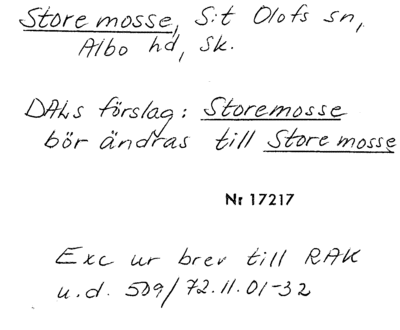 Store mosse, S:t Olofs sn,
Albo hd, Sk.
DALs förslag: Storemosse
bör ändras till Store mosse
Nr 17217
Exc ur brev till RAK
u.d. 509/72.11.01-32